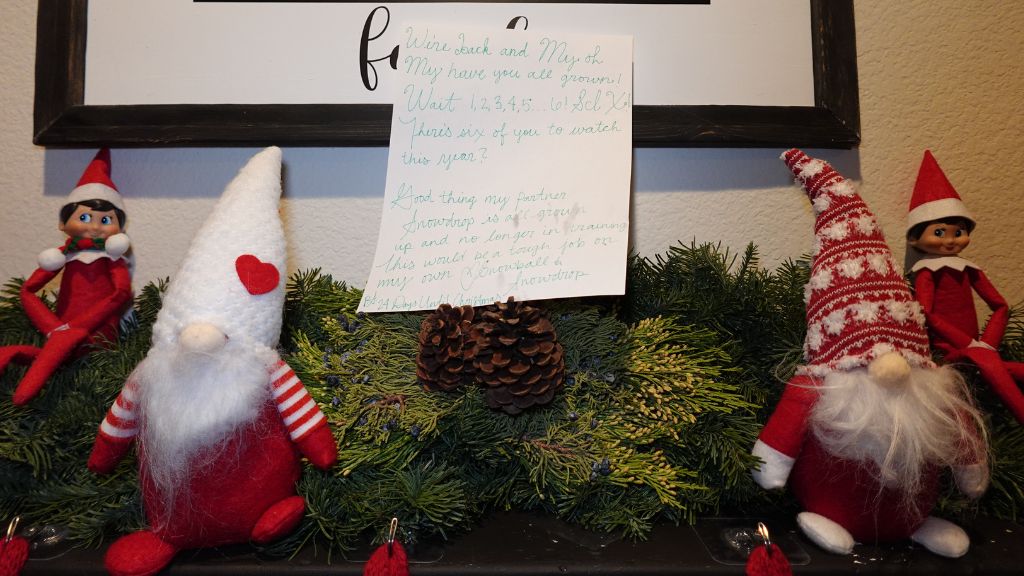 We're back and My oh
My have you all grown!
Wait 1,2,3,4,5...6!
There's six of you to watch
this year?
Good thing my partner
Snowdrop is all grown
up and no longer in training
this would be a tough job on
my own Snowball &
Snowdrop
24 Days Until Christmas